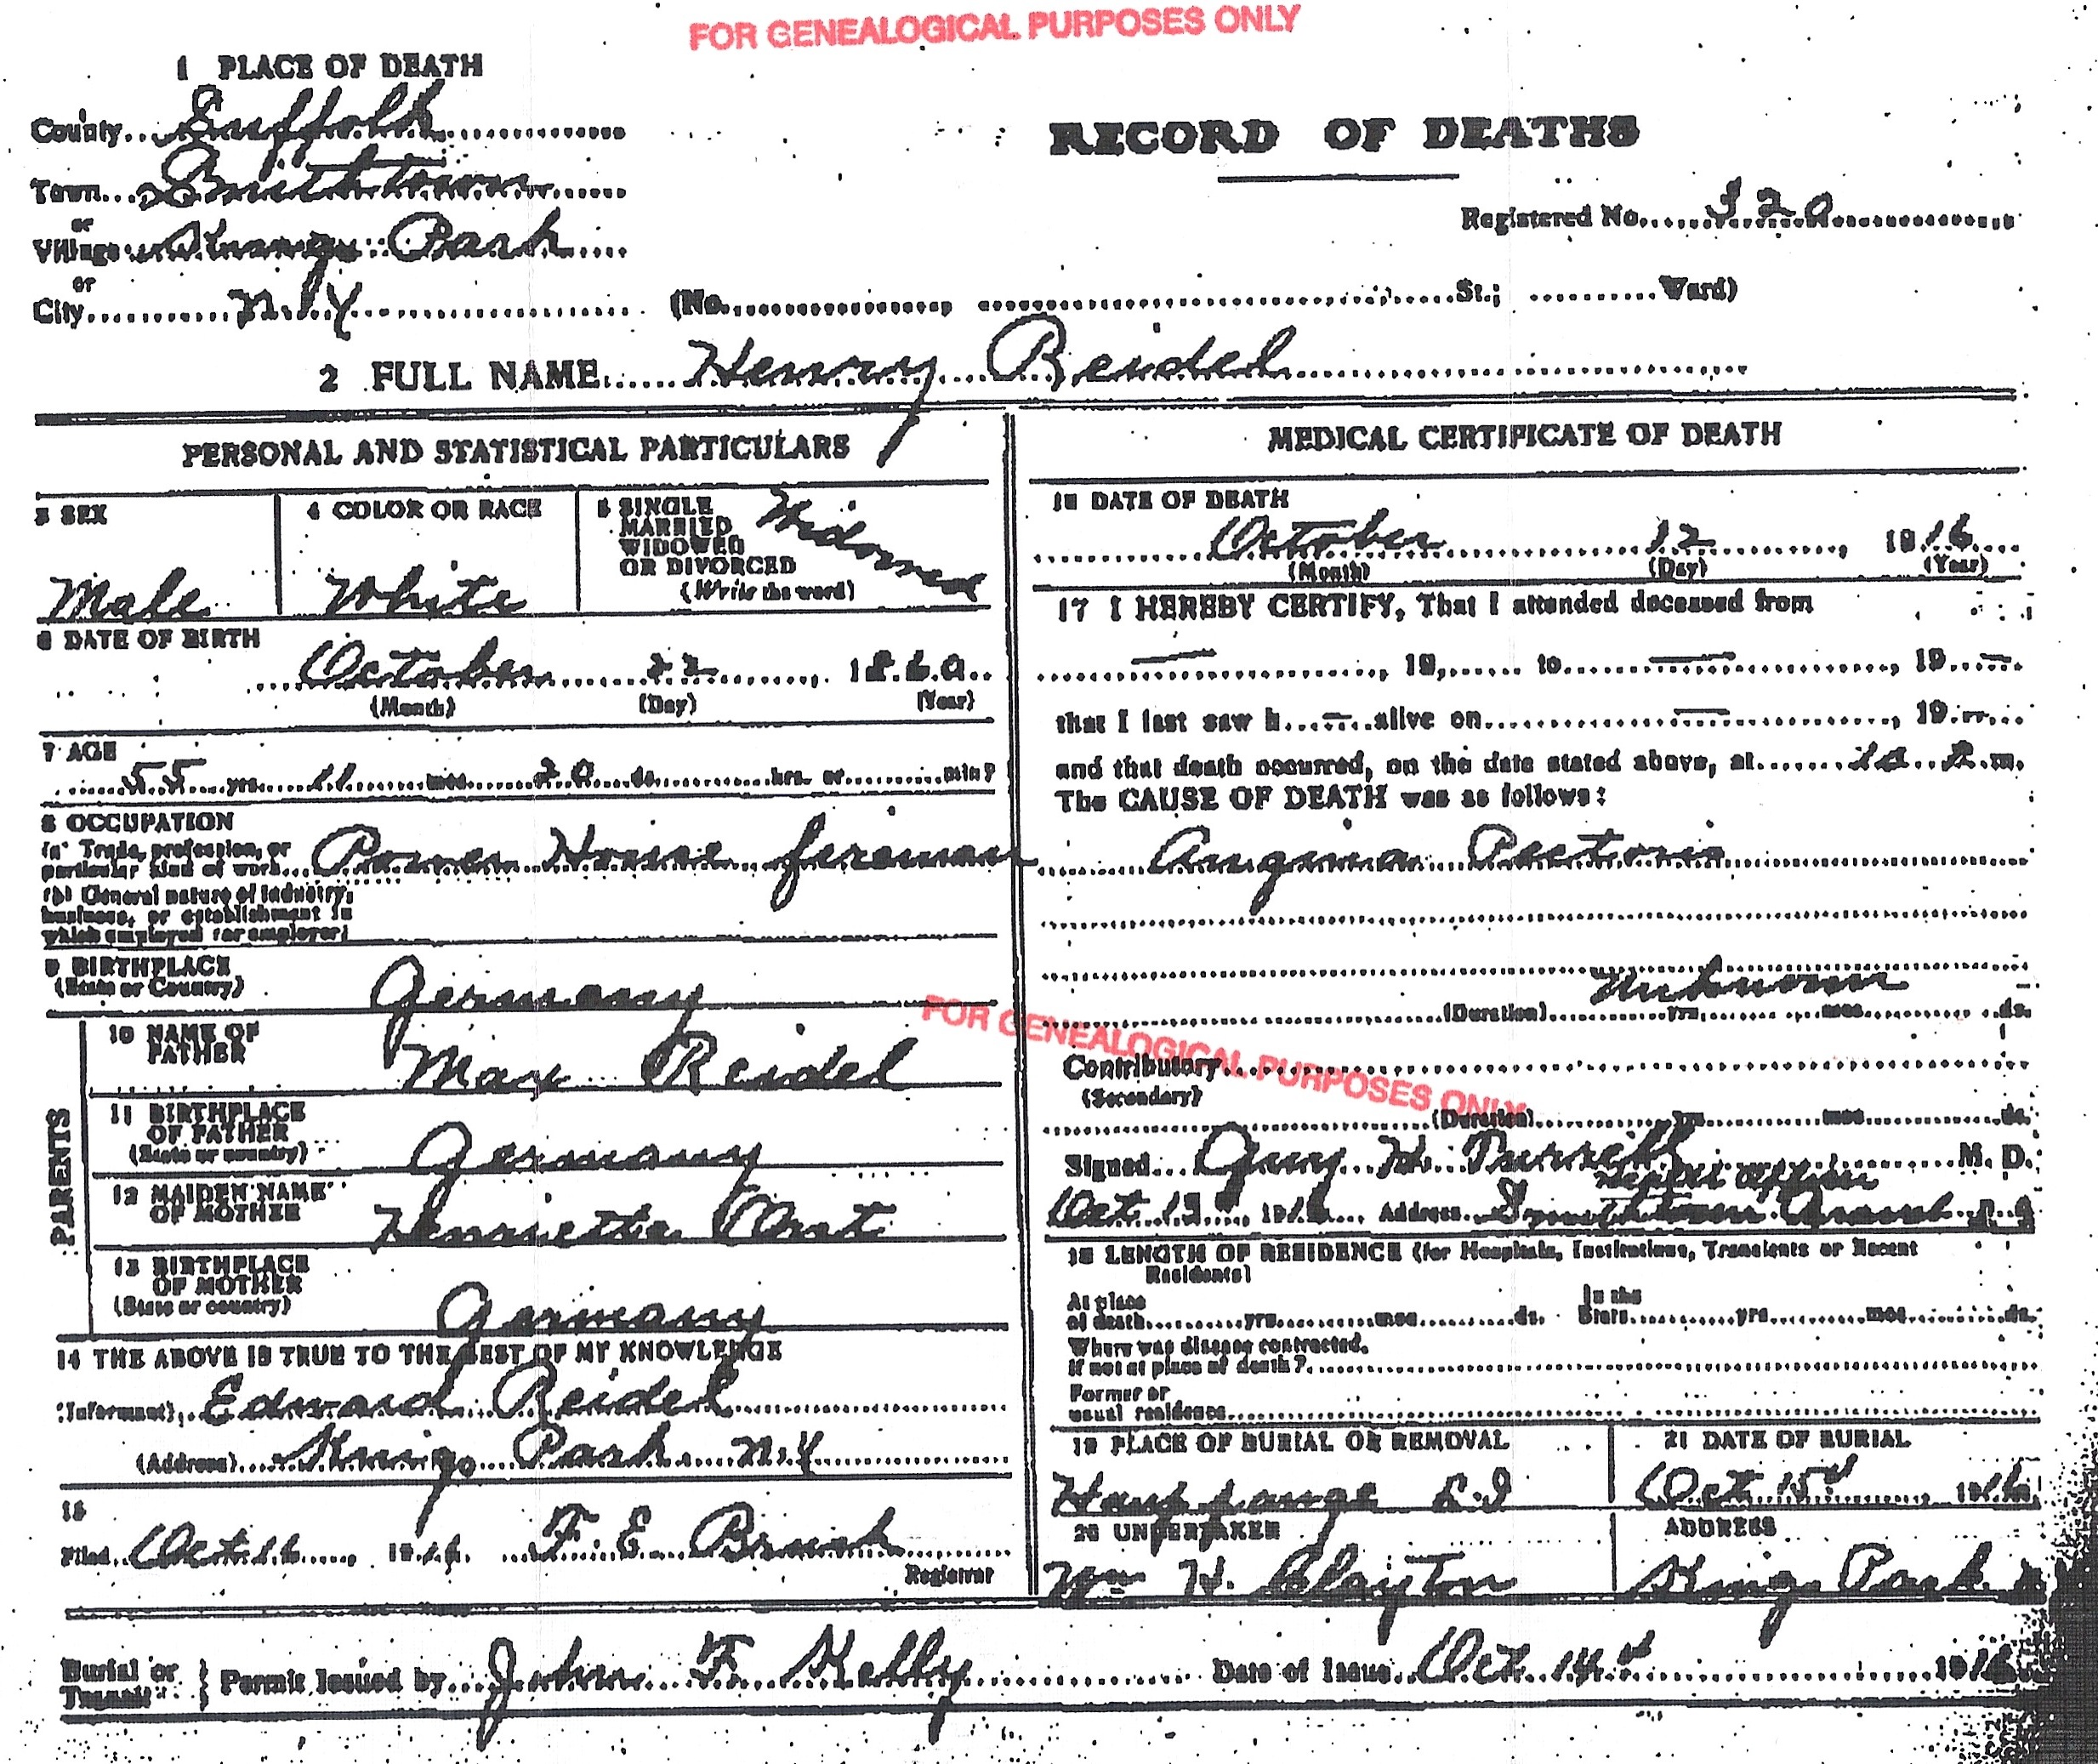 FOR GENEALOGICAL PURPOSES ONLY
1 PLACE OF DEATH
County Suffolk
RECORD OF DEATHS
Town Smithtown
or
Registered No. 320
Village Kings Park
or
City N.Y (No. St.; Ward)
2 FULL NAME Henry Reidel
PERSONAL AND STATISTICAL PARTICULARS
3 SEX
Male
4 COLOR OR RACE
White
5 SINGLE
MARRIED
WIDOWED
OR DIVORCED
(Write the word)
Widowed
6 DATE OF BIRTH
October 22, 1860
(Month) (Day) (Year)
7 AGE
55 yrs. 11 mos. 20 ds. hrs. or min?
8 OCCUPATION
(a) Trade, profession, or
particular kind of work Power House foreman
(b) General nature of industry,
business, or establishment in
which employed (or employer)
9 BIRTHPLACE
(State or Country) Germany
PARENTS
10 NAME OF
FATHER
Max Reidel
11 BIRTHPLACE
OF FATHER
(State or country) Germany
12 MAIDEN NAME
OF MOTHER Henrietta
13 BIRTHPLACE
OF MOTHER
(State or country) Germany
14 THE ABOVE IS TRUE TO THE BEST OF MY KNOWLEDGE
(Informant) Edward Reidel
(Address) Kings Park N.Y
15
Filed Oct 16, 1916. F. E. Brush
Registrar
MEDICAL CERTIFICATE OF DEATH
16 DATE OF DEATH
October 12, 1916
(Month) (Day) (Year)
17 I HEREBY CERTIFY, That I attended deceased from
—, 19, to —, 19 —
that I last saw h — alive on —, 19 —
and that death occurred, on the date stated above, at 10 P.m.
The CAUSE OF DEATH was as follows:
Angina Pectoris
Unknown
(Duration) yrs. mos. ds.
FOR GENEALOGICAL PURPOSES ONLY
Contributory
(Secondary)
(Duration) yrs. mos. ds.
Signed Guy H. Turrell M. D.
Oct 13, 1916, Address Smithtown Branch
18 LENGTH OF RESIDENCE (for Hospitals, Institutions, Transients or Recent
Residents)
At place In the
of death yrs. mos. ds. State yrs. mos. ds.
Where was disease contracted,
if not at place of death?
Former or
usual residence
19 PLACE OF BURIAL OR REMOVAL
Hauppauge L.I
21 DATE OF BURIAL
Oct 15, 1916
20 UNDERTAKER
Wm H. Clayton
ADDRESS
Kings Park
Burial or
Transit } Permit Issued by John F. Kelly Date of Issue Oct. 14 1916